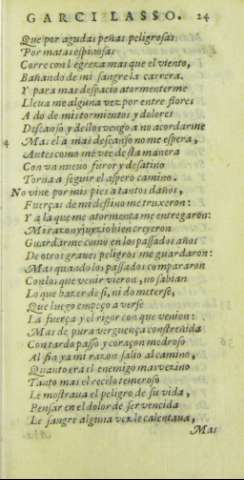 GARCI LASSO. 24
Que por agudas peñas peligrosas
Por matas espinosas
Corre con ligereza mas que el viento,
Bañando de mi sangre la carrera.
Y para mas despacio atormentarme
Lleua me alguna vez por entre flores
A do de mis tormentos y dolores
Descanso, y dellos vengo a no acordarme
Mas el a mas descanso no me espera,
Antes como me vee desta manera
Con vn nueuo furor y desatino
Torna a seguir el aspero camino.
No vine por mis pies a tantos daños,
Fuerças de mi destino me truxeron:
Y a la que me atormenta me entregaron:
Mi razon y juyzio bien creyeron
Guardarme como en los passados años
De otros graues peligros me guardaron:
Mas quando los passados compararon
Con los que venir vieron, no sabian
Lo que hazer de si, ni do meterse,
Que luego empeço a verse
La fuerça y el rigor con que venian:
Mas de pura verguença constreñida
Con tardo passo y coraçon medroso
Al fin ya mi razon salio al camino,
Quanto era el enemigo mas vezino
Tanto mas el recelo temeroso
Le mostraua el peligro de su vida,
Pensar en el dolor de ser vencida
Le sangre alguna vez le calentaua,
Mas